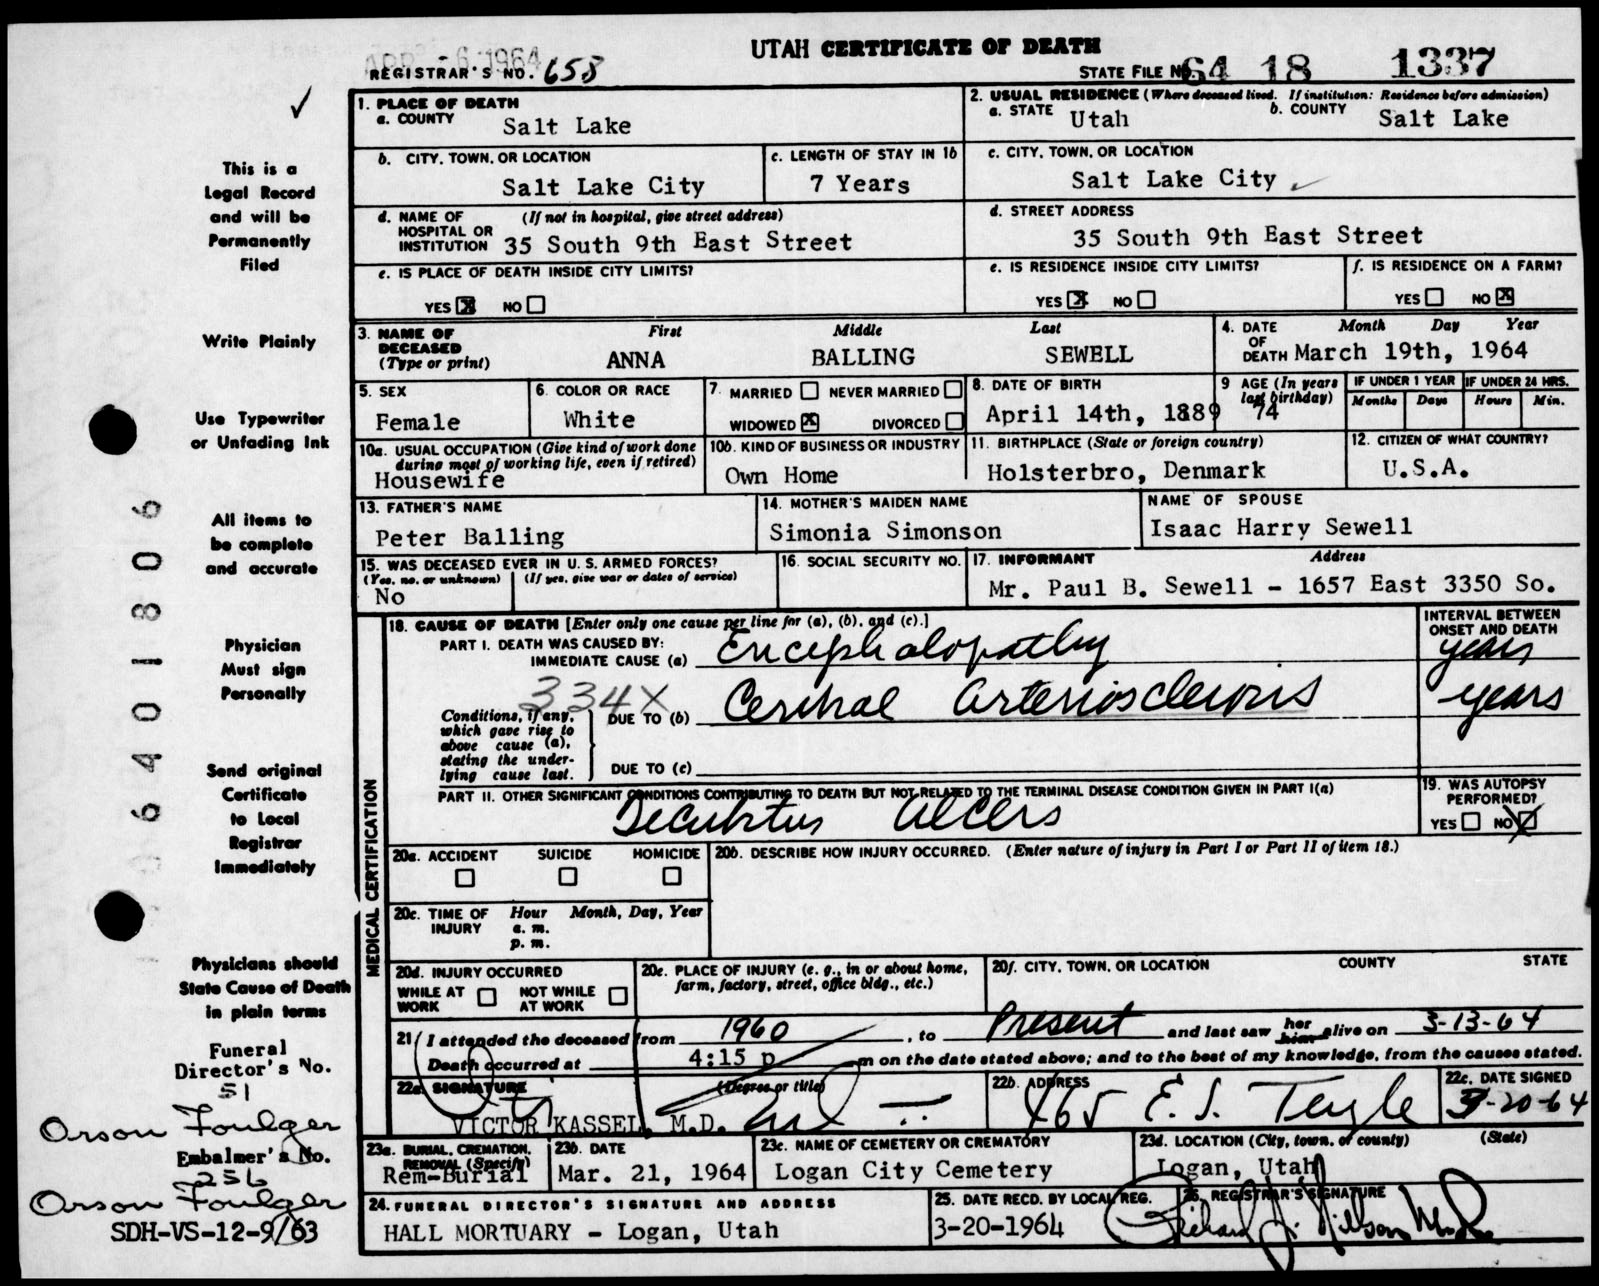 UTAH CERTIFICATE OF DEATH
APR -6 1964
REGISTRAR'S NO. 658
STATE FILE NO. 64 18 1337
1. PLACE OF DEATH
a. COUNTY Salt Lake
2. USUAL RESIDENCE (Where deceased lived. If institution: Residence before admission)
a. STATE Utah b. COUNTY Salt Lake
b. CITY, TOWN, OR LOCATION Salt Lake City
c. LENGTH OF STAY IN 1b 7 Years
c. CITY, TOWN, OR LOCATION Salt Lake City
d. NAME OF HOSPITAL OR INSTITUTION (If not in hospital, give street address) 35 South 9th East Street
d. STREET ADDRESS 35 South 9th East Street
e. IS PLACE OF DEATH INSIDE CITY LIMITS?
YES X NO
e. IS RESIDENCE INSIDE CITY LIMITS?
YES X NO
f. IS RESIDENCE ON A FARM?
YES NO X
3. NAME OF DECEASED (Type or print)
First Middle Last
ANNA BALLING SEWELL
4. DATE OF DEATH Month Day Year
March 19th, 1964
5. SEX Female
6. COLOR OR RACE White
7. MARRIED NEVER MARRIED
WIDOWED X DIVORCED
8. DATE OF BIRTH April 14th, 1889
9 AGE (In years last birthday) 74
IF UNDER 1 YEAR Months Days
IF UNDER 24 HRS. Hours Min.
10a. USUAL OCCUPATION (Give kind of work done during most of working life, even if retired)
Housewife
10b. KIND OF BUSINESS OR INDUSTRY
Own Home
11. BIRTHPLACE (State or foreign country)
Holsterbro, Denmark
12. CITIZEN OF WHAT COUNTRY?
U.S.A.
13. FATHER'S NAME
Peter Balling
14. MOTHER'S MAIDEN NAME
Simonia Simonson
NAME OF SPOUSE
Isaac Harry Sewell
15. WAS DECEASED EVER IN U. S. ARMED FORCES?
(Yes, no, or unknown) (If yes, give war or dates of service)
No
16. SOCIAL SECURITY NO.
17. INFORMANT Address
Mr. Paul B. Sewell - 1657 East 3350 So.
MEDICAL CERTIFICATION
18. CAUSE OF DEATH [Enter only one cause per line for (a), (b), and (c).]
INTERVAL BETWEEN ONSET AND DEATH
PART I. DEATH WAS CAUSED BY:
IMMEDIATE CAUSE (a) Encephalopathy years
334X
Conditions, if any, which gave rise to above cause (a), stating the underlying cause last.
DUE TO (b) Cerebral arteriosclerosis years
DUE TO (c)
PART II. OTHER SIGNIFICANT CONDITIONS CONTRIBUTING TO DEATH BUT NOT RELATED TO THE TERMINAL DISEASE CONDITION GIVEN IN PART I(a)
Decubitus ulcers
19. WAS AUTOPSY PERFORMED?
YES NO X
20a. ACCIDENT SUICIDE HOMICIDE
20b. DESCRIBE HOW INJURY OCCURRED. (Enter nature of injury in Part I or Part II of item 18.)
20c. TIME OF INJURY Hour Month, Day, Year
a. m.
p. m.
20d. INJURY OCCURRED
WHILE AT WORK NOT WHILE AT WORK
20e. PLACE OF INJURY (e. g., in or about home, farm, factory, street, office bldg., etc.)
20f. CITY, TOWN, OR LOCATION COUNTY STATE
21 I attended the deceased from 1960, to Present and last saw her him alive on 3-13-64
Death occurred at 4:15 p m on the date stated above; and to the best of my knowledge, from the causes stated.
22a SIGNATURE (Degree or title)
VICTOR KASSEL, M.D.
22b. ADDRESS
465 E. S. Temple
22c. DATE SIGNED
3-20-64
23a. BURIAL, CREMATION, REMOVAL (Specify)
Rem-Burial
23b. DATE
Mar. 21, 1964
23c. NAME OF CEMETERY OR CREMATORY
Logan City Cemetery
23d. LOCATION (City, town, or county) (State)
Logan, Utah
24. FUNERAL DIRECTOR'S SIGNATURE AND ADDRESS
HALL MORTUARY - Logan, Utah
25. DATE RECD. BY LOCAL REG.
3-20-1964
26. REGISTRAR'S SIGNATURE
This is a
Legal Record
and will be
Permanently
Filed
Write Plainly
Use Typewriter
or Unfading Ink
All items to
be complete
and accurate
Physician
Must sign
Personally
Send original
Certificate
to Local
Registrar
Immediately
Physicians should
State Cause of Death
in plain terms
Funeral
Director's No.
51
Orson Foulger
Embalmer's No.
256
Orson Foulger
SDH-VS-12-9/63
06401806